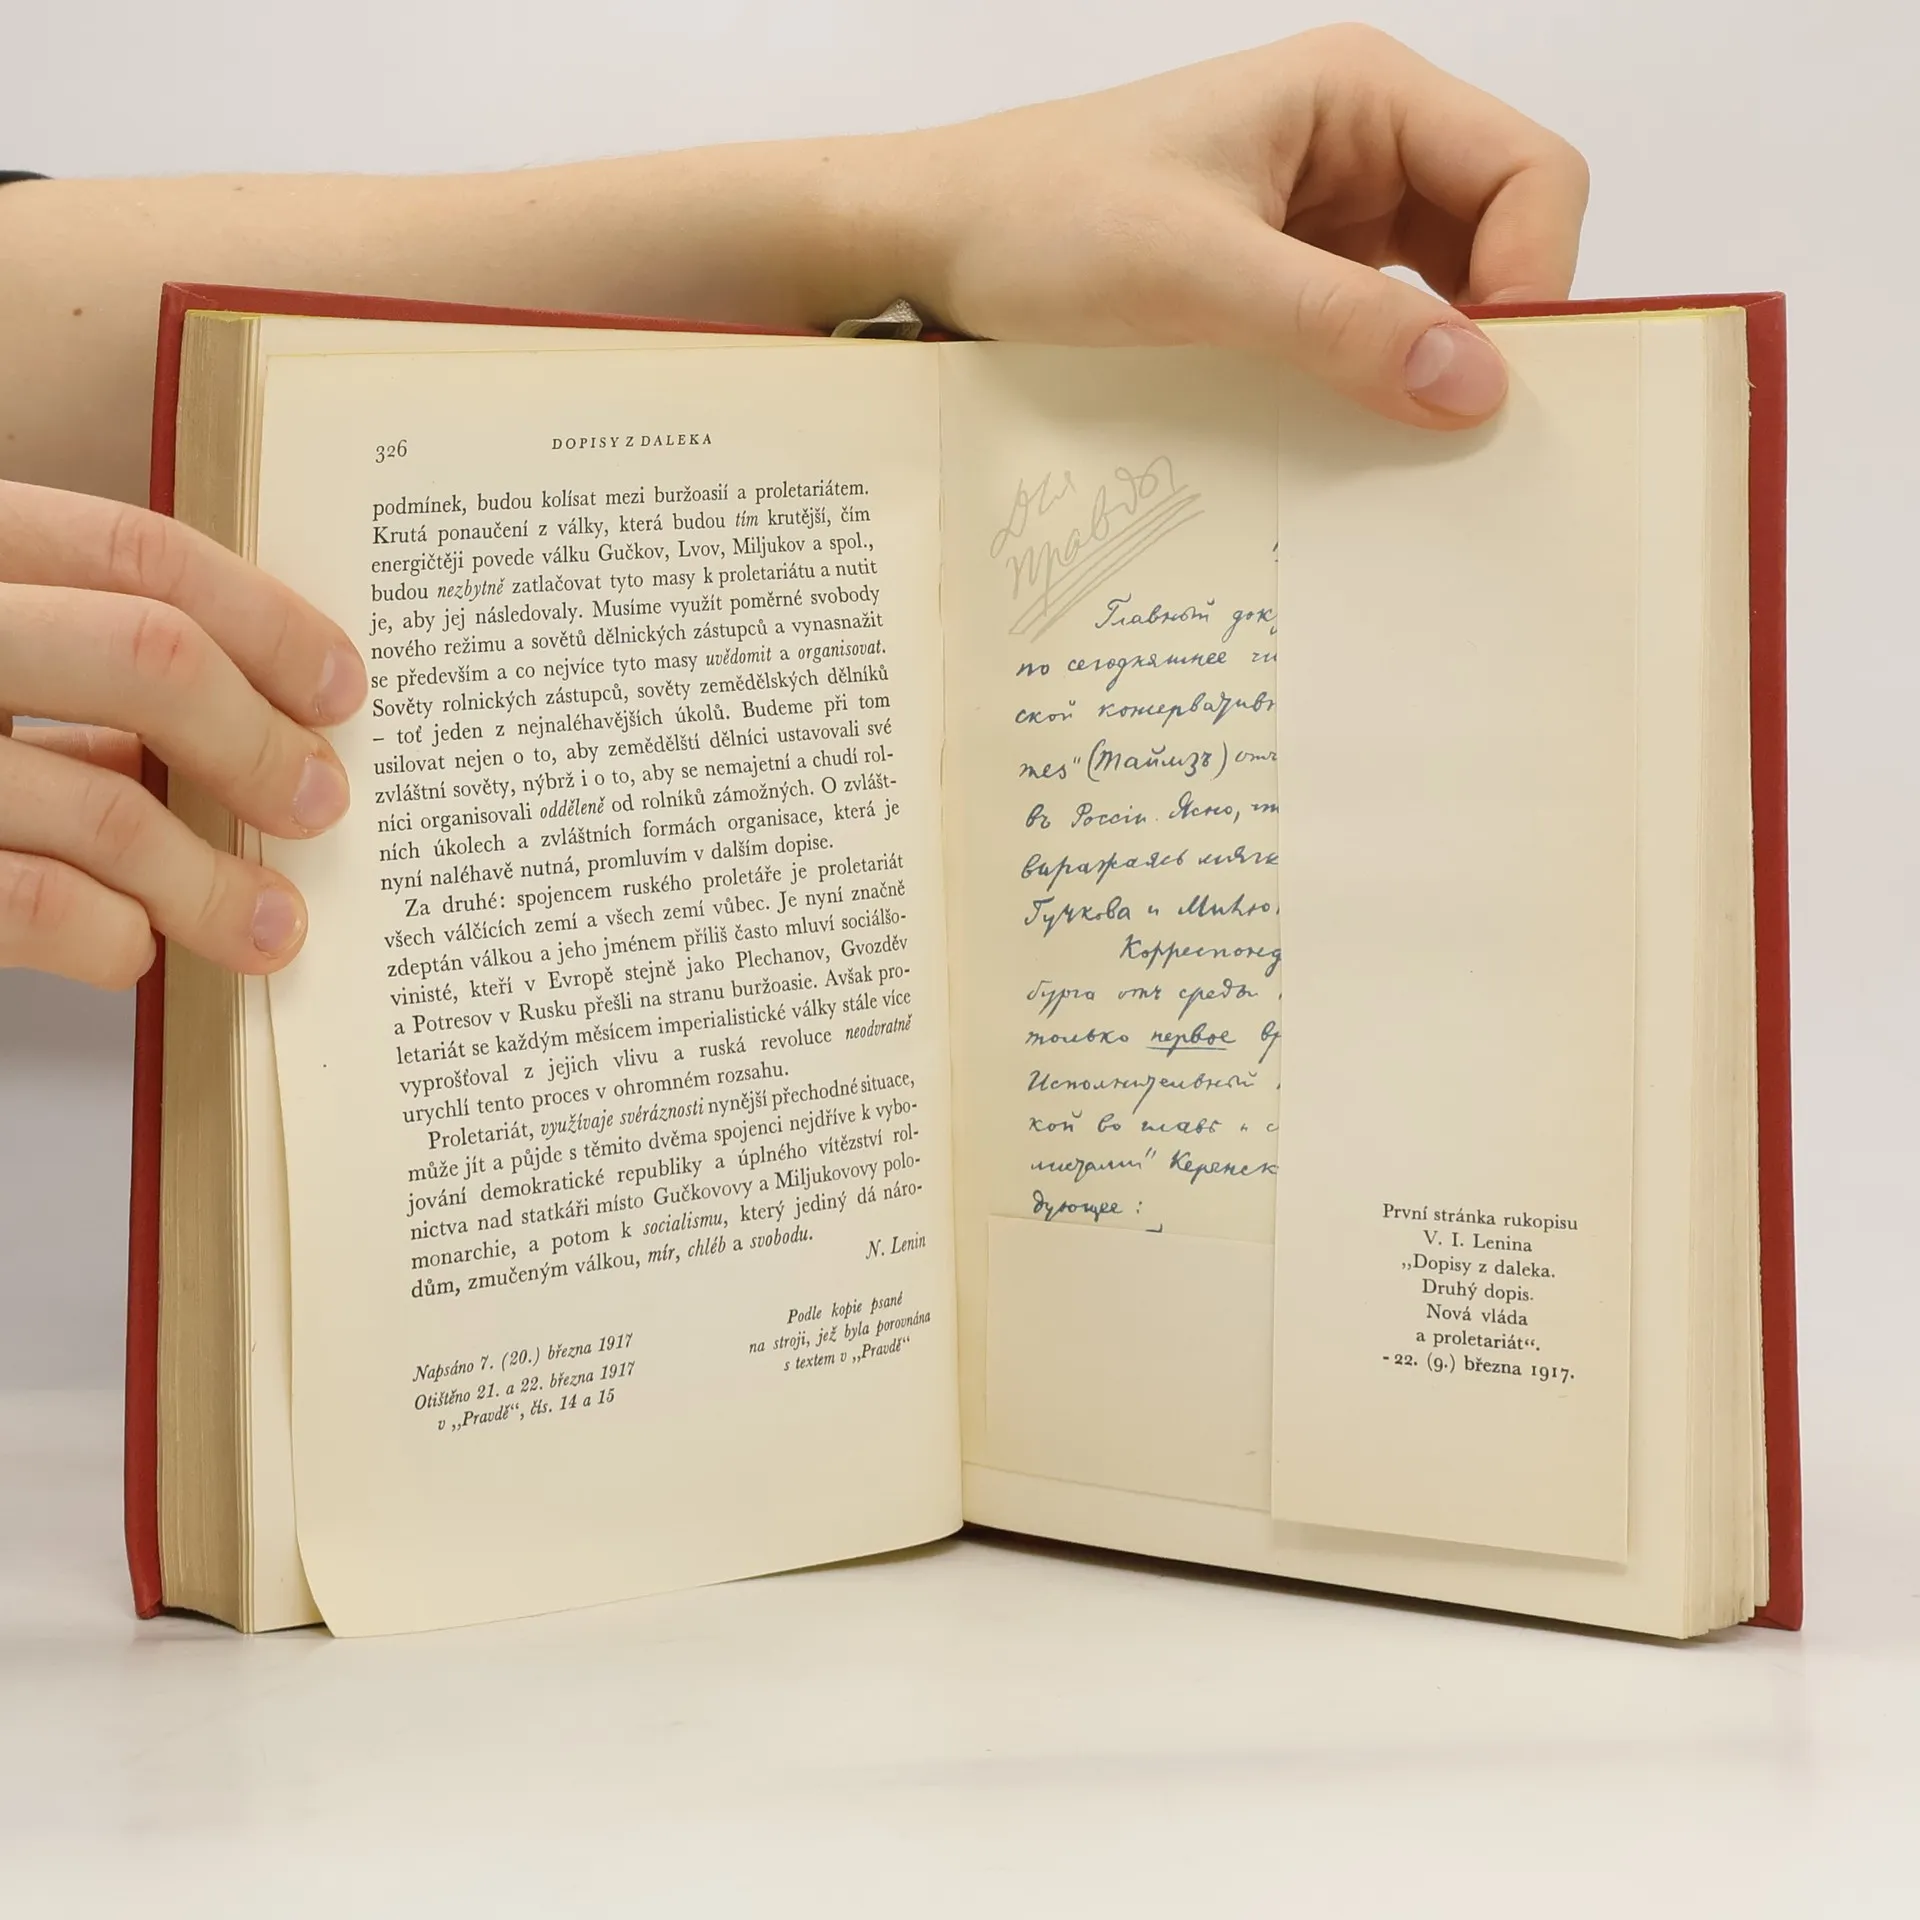 326
DOPISY Z DALEKA
podmínek, budou kolísat mezi buržoasií a proletariátem.
Krutá ponaučení z války, která budou tím krutější, čím
energičtěji povede válku Gučkov, Lvov, Miljukov a spol.,
budou nezbytně zatlačovat tyto masy k proletariátu a nutit
je, aby jej následovaly. Musíme využít poměrné svobody
nového režimu a sovětů dělnických zástupců a vynasnažit
se především a co nejvíce tyto masy uvědomit a organisovat.
Sověty rolnických zástupců, sověty zemědělských dělníků
– toť jeden z nejnaléhavějších úkolů. Budeme při tom
usilovat nejen o to, aby zemědělští dělníci ustavovali své
zvláštní sověty, nýbrž i o to, aby se nemajetní a chudí rol-
níci organisovali odděleně od rolníků zámožných. O zvlášt-
ních úkolech a zvláštních formách organisace, která je
nyní naléhavě nutná, promluvím v dalším dopise.
Za druhé: spojencem ruského proletáře je proletariát
všech válčících zemí a všech zemí vůbec. Je nyní značně
zdeptán válkou a jeho jménem příliš často mluví sociálšo-
vinisté, kteří v Evropě stejně jako Plechanov, Gvozděv
a Potresov v Rusku přešli na stranu buržoasie. Avšak pro-
letariát se každým měsícem imperialistické války stále více
vyprošťoval z jejich vlivu a ruská revoluce neodvratně
urychlí tento proces v ohromném rozsahu.
Proletariát, využívaje svéráznosti nynější přechodné situace,
může jít a půjde s těmito dvěma spojenci nejdříve k vybo-
jování demokratické republiky a úplného vítězství rol-
nictva nad statkáři místo Gučkovovy a Miljukovovy polo-
monarchie, a potom k socialismu, který jediný dá náro-
dům, zmučeným válkou, mír, chléb a svobodu.
N. Lenin
Napsáno 7. (20.) března 1917
Otištěno 21. a 22. března 1917
v „Pravdě“, čís. 14 a 15
Podle kopie psané
na stroji, jež byla porovnána
s textem v „Pravdě“
Для
Правды
Главный док
по сегодняшнее чи
ской консервативн
mes" (Таймзъ) отъ
въ Россіи. Ясно, чт
выражаясь мягк
Гучкова и Милю
Корреспонд
бурга отъ среды
только первое вр
Исполнительный
кой во главѣ и с
листами" Керенск
дующее:
První stránka rukopisu
V. I. Lenina
„Dopisy z daleka.
Druhý dopis.
Nová vláda
a proletariát“.
- 22. (9.) března 1917.